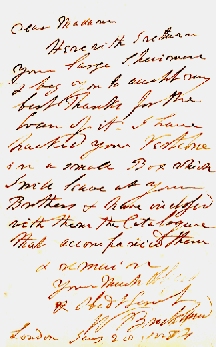 Dear Madam
Herewith I return
your large Specimen
& beg you to accept my
best thanks for the
loan of it. I have
packed your
in a small Box which
I will leave at your
Brothers & have
with them the Catalogue
that accompanied them
& remain
Your Much
& Obed Servt
W Buckland
London